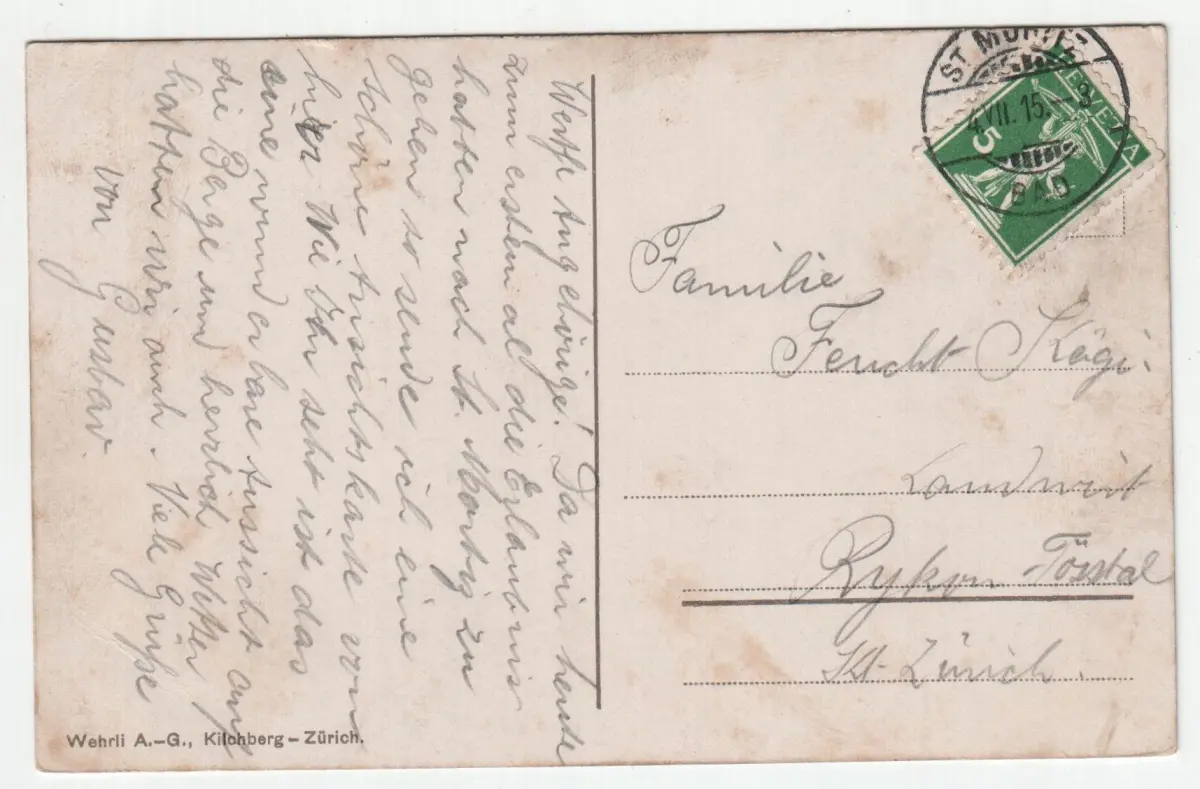 Werthe Angehörige! Da wir heute
zum ersten al die Erlaubnis
hatten nach St. Moritz zu
gehen so sende ich eine
schöne Ansichtskarte von
hier Wie Ihr seht ist das
eine wunderbare Aussicht auf
die Berge und herrlich Wetter
hatten wir auch. Viele Grüße
von
Gustav.
ST. MORITZ
4.VII.15.–8
BAD
HELVETIA
5
Familie
Feucht Kägi.
Landwirt
Rykon-Tösstal
Kt. Zürich.
Wehrli A.-G., Kilchberg – Zürich.